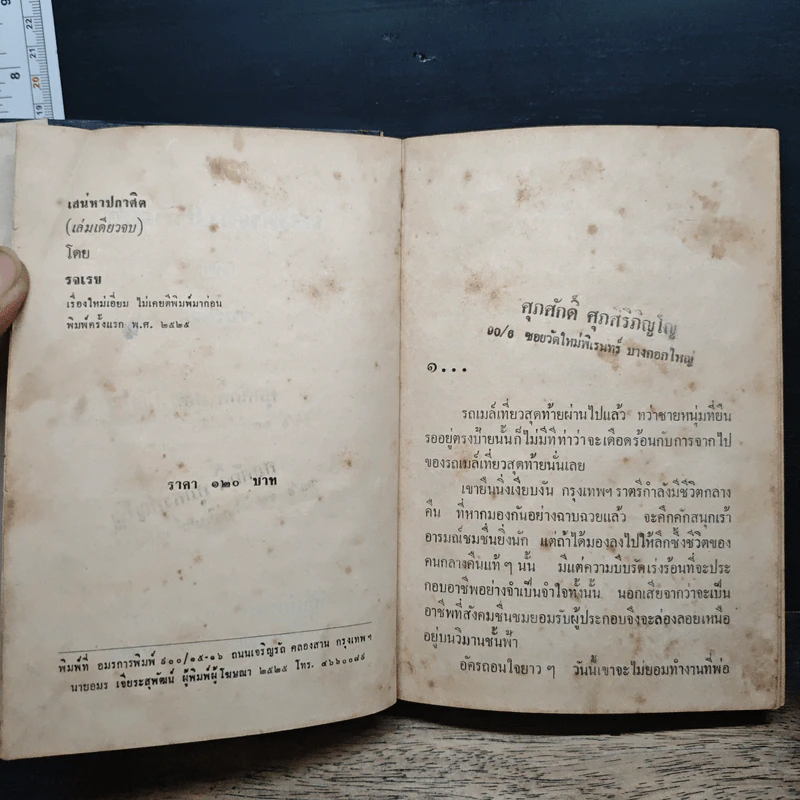 เสน่หาปกาศิต
(เล่มเดียวจบ)
โดย
รจเรข
เรื่องใหม่เอี่ยม ไม่เคยตีพิมพ์มาก่อน
พิมพ์ครั้งแรก พ.ศ. ๒๕๒๕
ราคา ๑๒๐ บาท
พิมพ์ที่ อมรการพิมพ์ ๙๐๐/๑๕-๑๖ ถนนเจริญรัถ คลองสาน กรุงเทพฯ
นายอมร เจียระสุพัฒน์ ผู้พิมพ์ผู้โฆษณา ๒๕๒๕ โทร. ๔๖๖๐๐๘๙
ศุภศักดิ์ ศุภสิริภิญโญ
๑๐/๖ ซอยวัดใหม่พิเรนทร์ บางกอกใหญ่
๑...
รถเมล์เที่ยวสุดท้ายผ่านไปแล้ว ทว่าชายหนุ่มที่ยืน
รออยู่ตรงป้ายนั้นก็ไม่มีทีท่าว่าจะเดือดร้อนกับการจากไป
ของรถเมล์เที่ยวสุดท้ายนั่นเลย
เขายืนนิ่งเงียบงัน กรุงเทพฯ ราตรีกำลังมีชีวิตกลาง
คืน ที่หากมองกันอย่างฉาบฉวยแล้ว จะคึกคักสนุกเร้า
อารมณ์ชมชื่นยิ่งนัก แต่ถ้าได้มองลงไปให้ลึกซึ้งชีวิตของ
คนกลางคืนแท้ ๆ นั้น มีแต่ความบีบรัดเร่งร้อนที่จะประ
กอบอาชีพอย่างจำเป็นจำใจทั้งนั้น นอกเสียจากว่าจะเป็น
อาชีพที่สังคมชื่นชมยอมรับผู้ประกอบจึงจะล่องลอยเหนือ
อยู่บนวิมานชั้นฟ้า
อัครถอนใจยาว ๆ วันนี้เขาจะไม่ยอมทำงานที่พ่อ